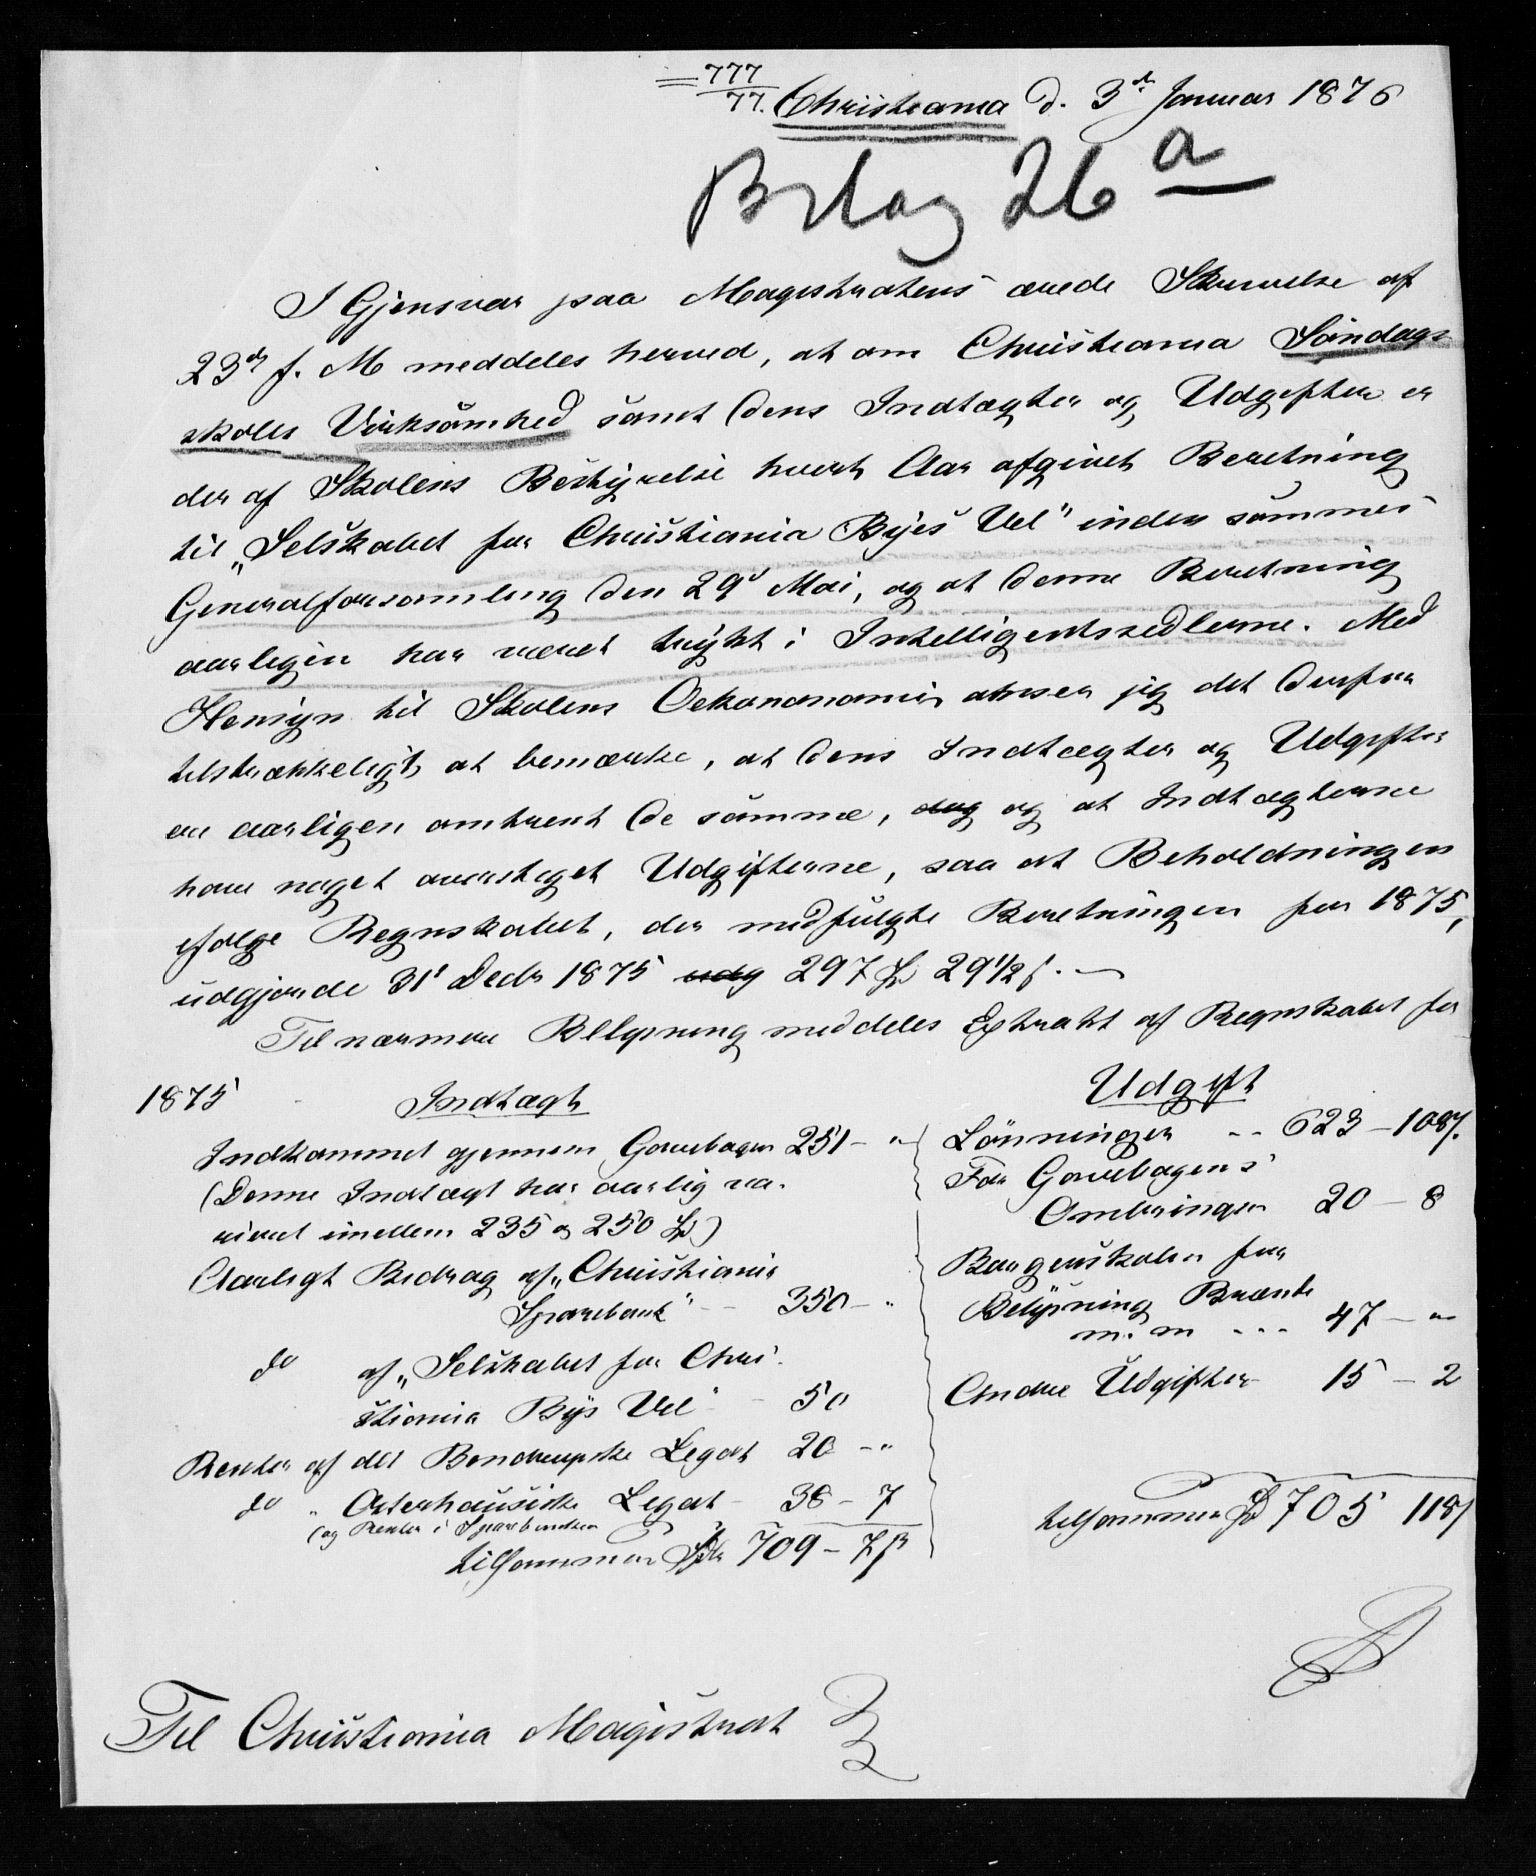 777
77. Christiania d. 3de Januar 1876
Bilag 26 a
I Gjensvar paa Magistratens ærede Skrivelse af
23de f. M meddeles herved, at om Christiania Söndags-
skoles Virksomhed samt dens Indtægter og Udgifter er
der af Skolens Bestyrelse hvert Aar afgivet Beretning
til "Selskabet for Christiania Byes Vel" inden sammes
Generalforsamling den 29de Mai, og at denne Beretning
aarligen har været trykt i Intelligentssedlerne. Med
Hensyn til Skolens Oekonomi anser jeg det derfor
tilstrækkeligt at bemærke, at dens Indtægter og Udgifter
ere aarligen omtrent de samme, dog og at Indtægterne
have noget oversteget Udgifterne, saa at Beholdningen
ifölge Regnskabet, der medfulgte Beretningen for 1875,
udgjorde 31te Decbr 1875 udg 297 Spd 29 1/2 s. —
Til nærmere Belysning meddeles Extrakt af Regnskabet for
1875 Indtægt
Indkommet gjennem Gavebogen 251 – "
(Denne Indtægt har aarlig va-
rieret imellem 235 og 250 Spd)
Aarligt Bidrag af "Christiania
Sparebank" – 350 – "
do af "Selskabet for Chri-
stiania Bys Vel" – 50
Renter af det Bendrupske Legat 20 – "
do " Osterhausiske Legat – 38 – 7
(og Renter i Sparebanken
tilsammen Spdlr 709 – 7 s
Udgift
Lönninger -- 623 – 108 s.
For Gavebogens
Ombringen 20 – 8
Borgerskolen for
Belysning Brænde
m. m --- 47 – "
Andre Udgifter 15 – 2
tilsammen Spd 705 118 s
Til Christiania Magistrat